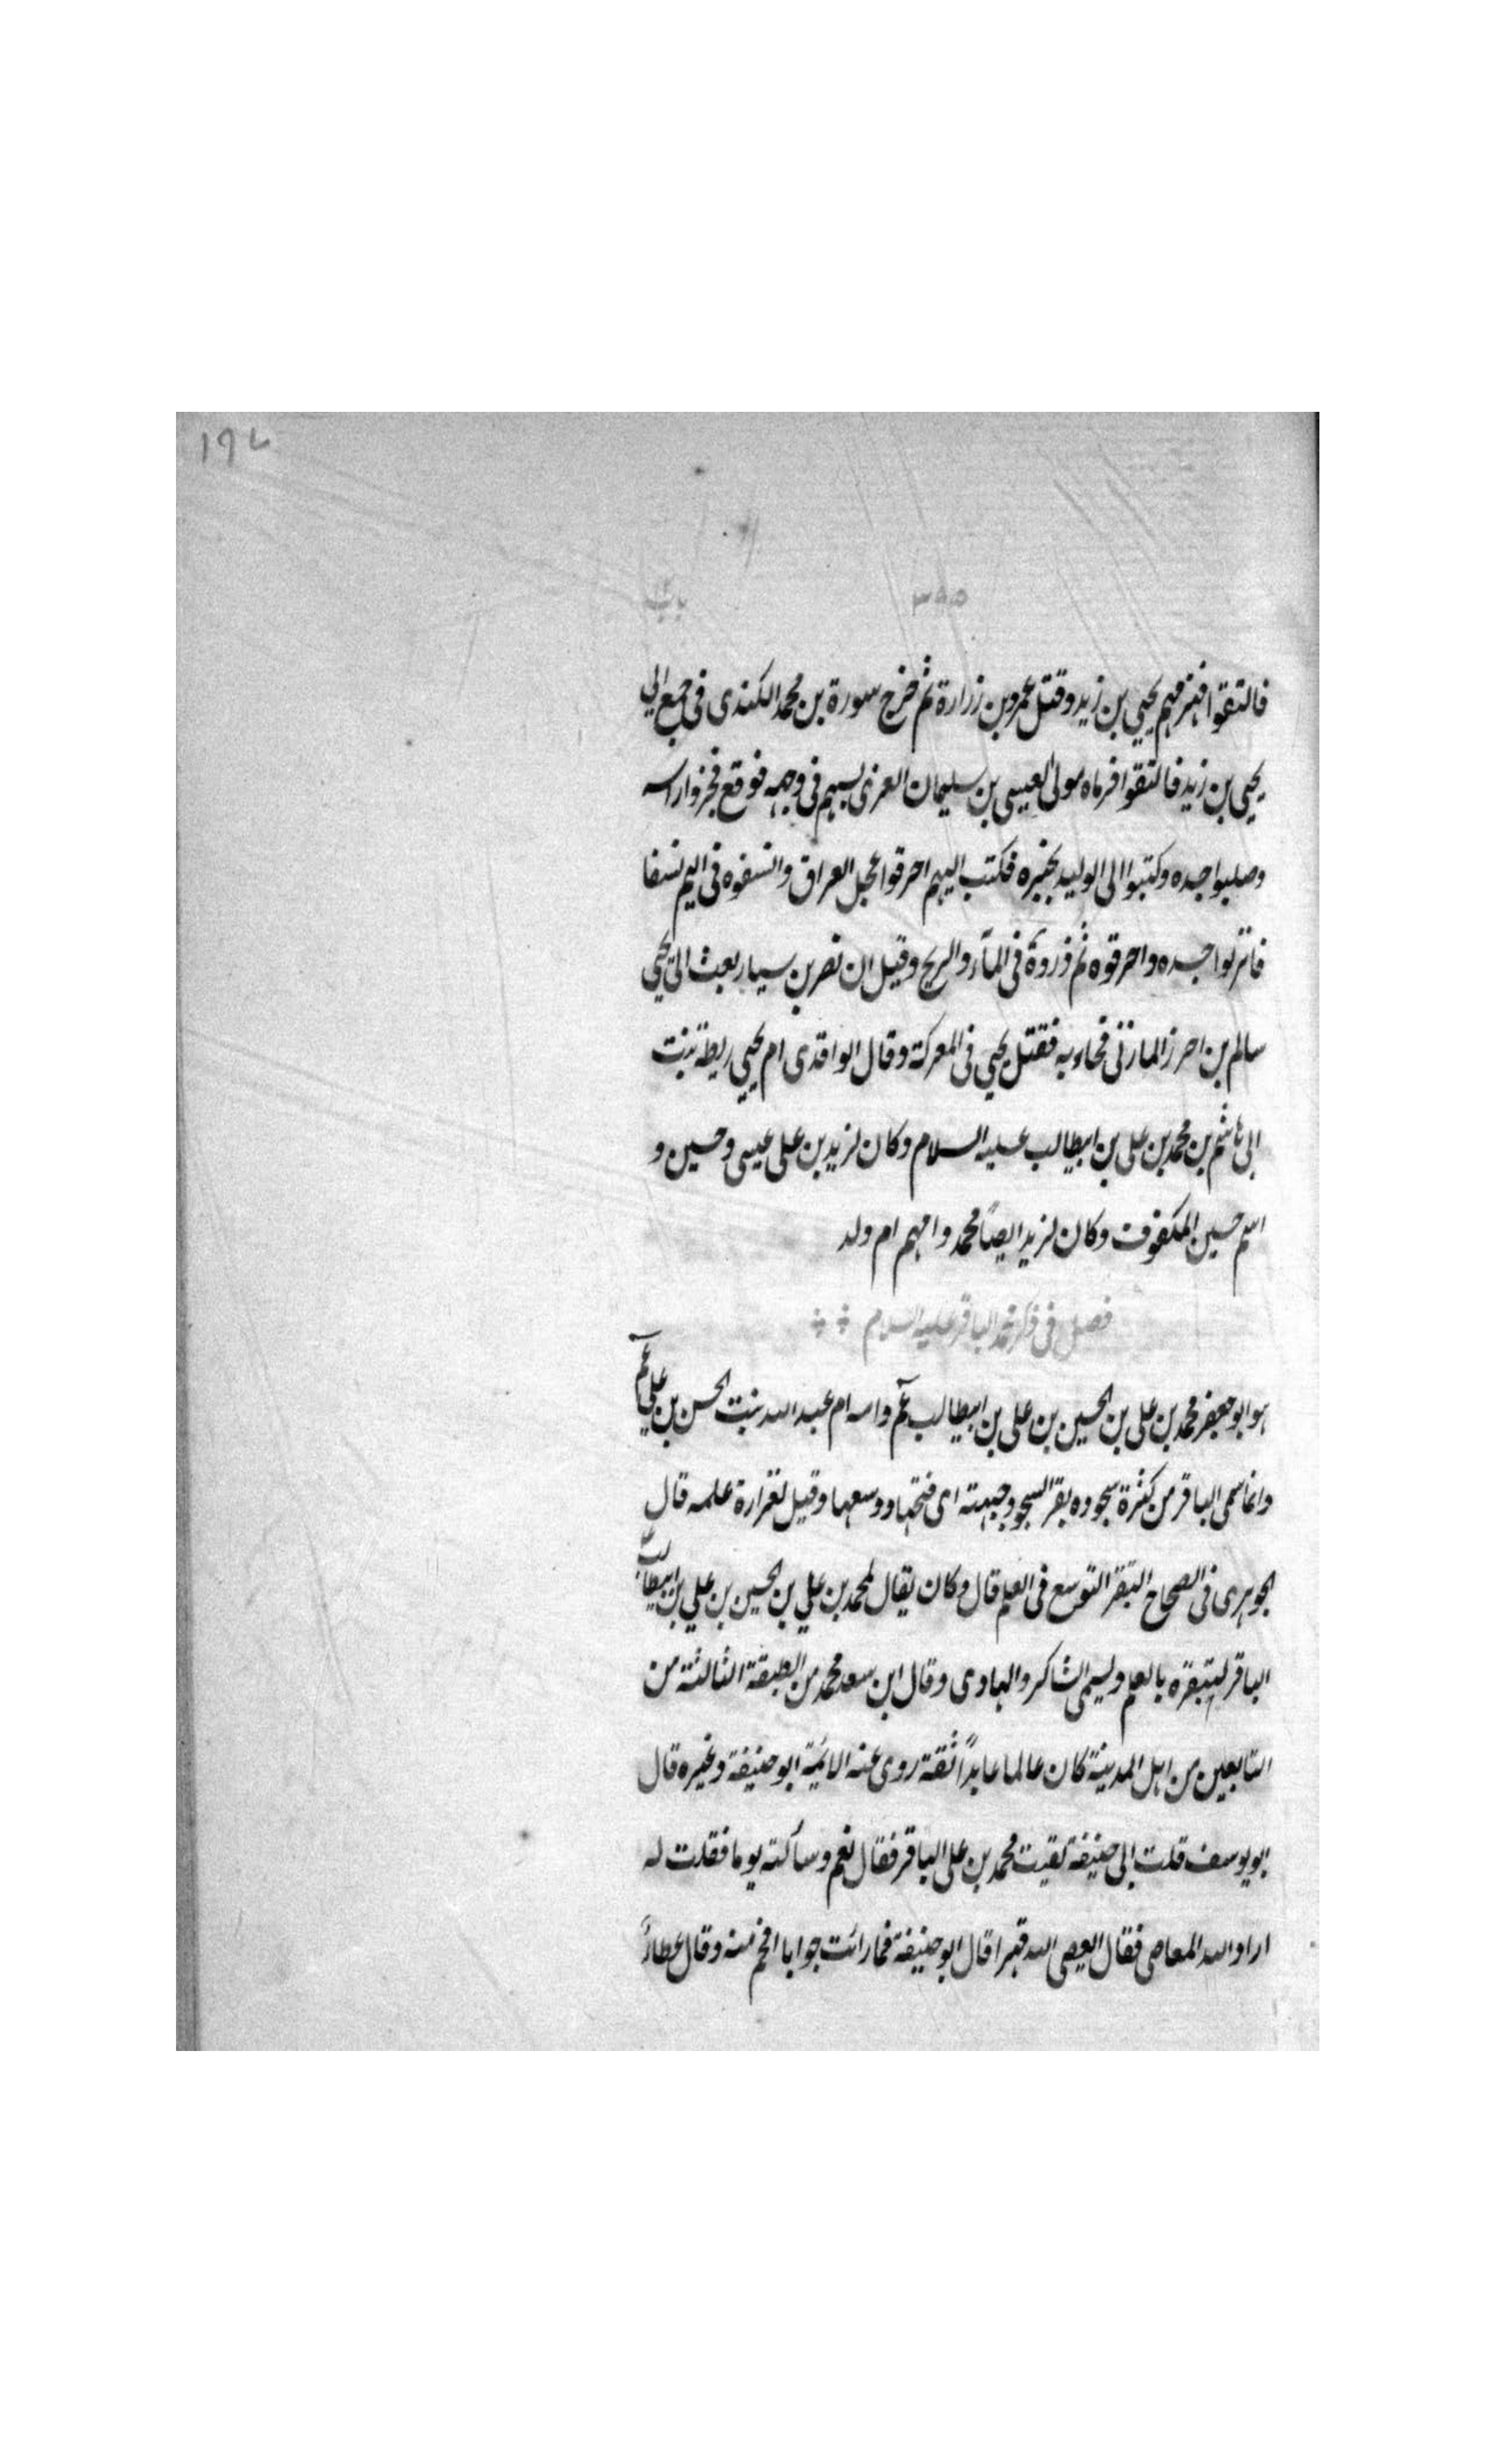 ١٩٨
٣٩٥
فالتقوا فهزمهم يحيى بن زيد وقتل عمرو بن زرارة ثم خرج سورة بن محمد الكندى فى جمع الى
يحيى بن زيد فالتقوا فرماه مولى لعيسى بن سليمان العنزى بسهم فى وجهه فوقع فحزوا راسه
وصلبوا جسده وكتبوا الى الوليد بخبره فكتب اليهم احرقوا عجل العراق وانسفوه فى اليم نسفا
فانزلوا جسده واحرقوه ثم ذروه فى المآء والريح وقيل ان نصر بن سيار بعث الى يحيى
سالم بن احرز المازنى فحاربه فقتل يحيى فى المعركة وقال الواقدى ام يحيى ريطة بنت
ابى هاشم بن محمد بن على بن ابيطالب عليه السلام وكان لزيد بن على عيسى وحسين و
اسم حسين المكفوف وكان لزيد ايضًا محمد وامهم ام ولد
فصل فى ذكر محمد الباقر عليه السلام
هو ابو جعفر محمد بن على بن الحسين بن على بن ابيطالب عم وامه ام عبد الله بنت الحسن بن على عم
وانما سمى الباقر من كثرة سجوده بقر السجود جبهته اى فتحها ووسعها وقيل لغزارة علمه قال
الجوهرى فى الصحاح التبقر التوسع فى العلم قال وكان يقال لمحمد بن على بن الحسين بن على بن ابيطالب
الباقر لتبقره بالعلم ويسمى الشاكر والهادى وقال ابن سعد محمد من الطبقة الثالثة من
التابعين من اهل المدينة كان عالما عابدًا ثقة روى عنه الائمة ابو حنيفة وغيره قال
ابو يوسف قلت لابى حنيفة لقيت محمد بن على الباقر فقال نعم وسألته يوما فقلت له
اراد الله المعاصى فقال افيعصى الله قهرا قال ابو حنيفة فما رائت جوابا افحم منه وقال عطاءً